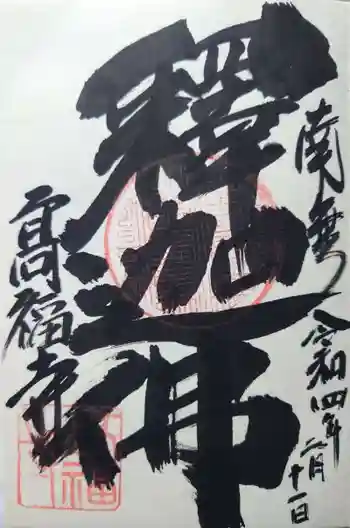 南無
令和四年二月十一日
釋迦佛
高福寺